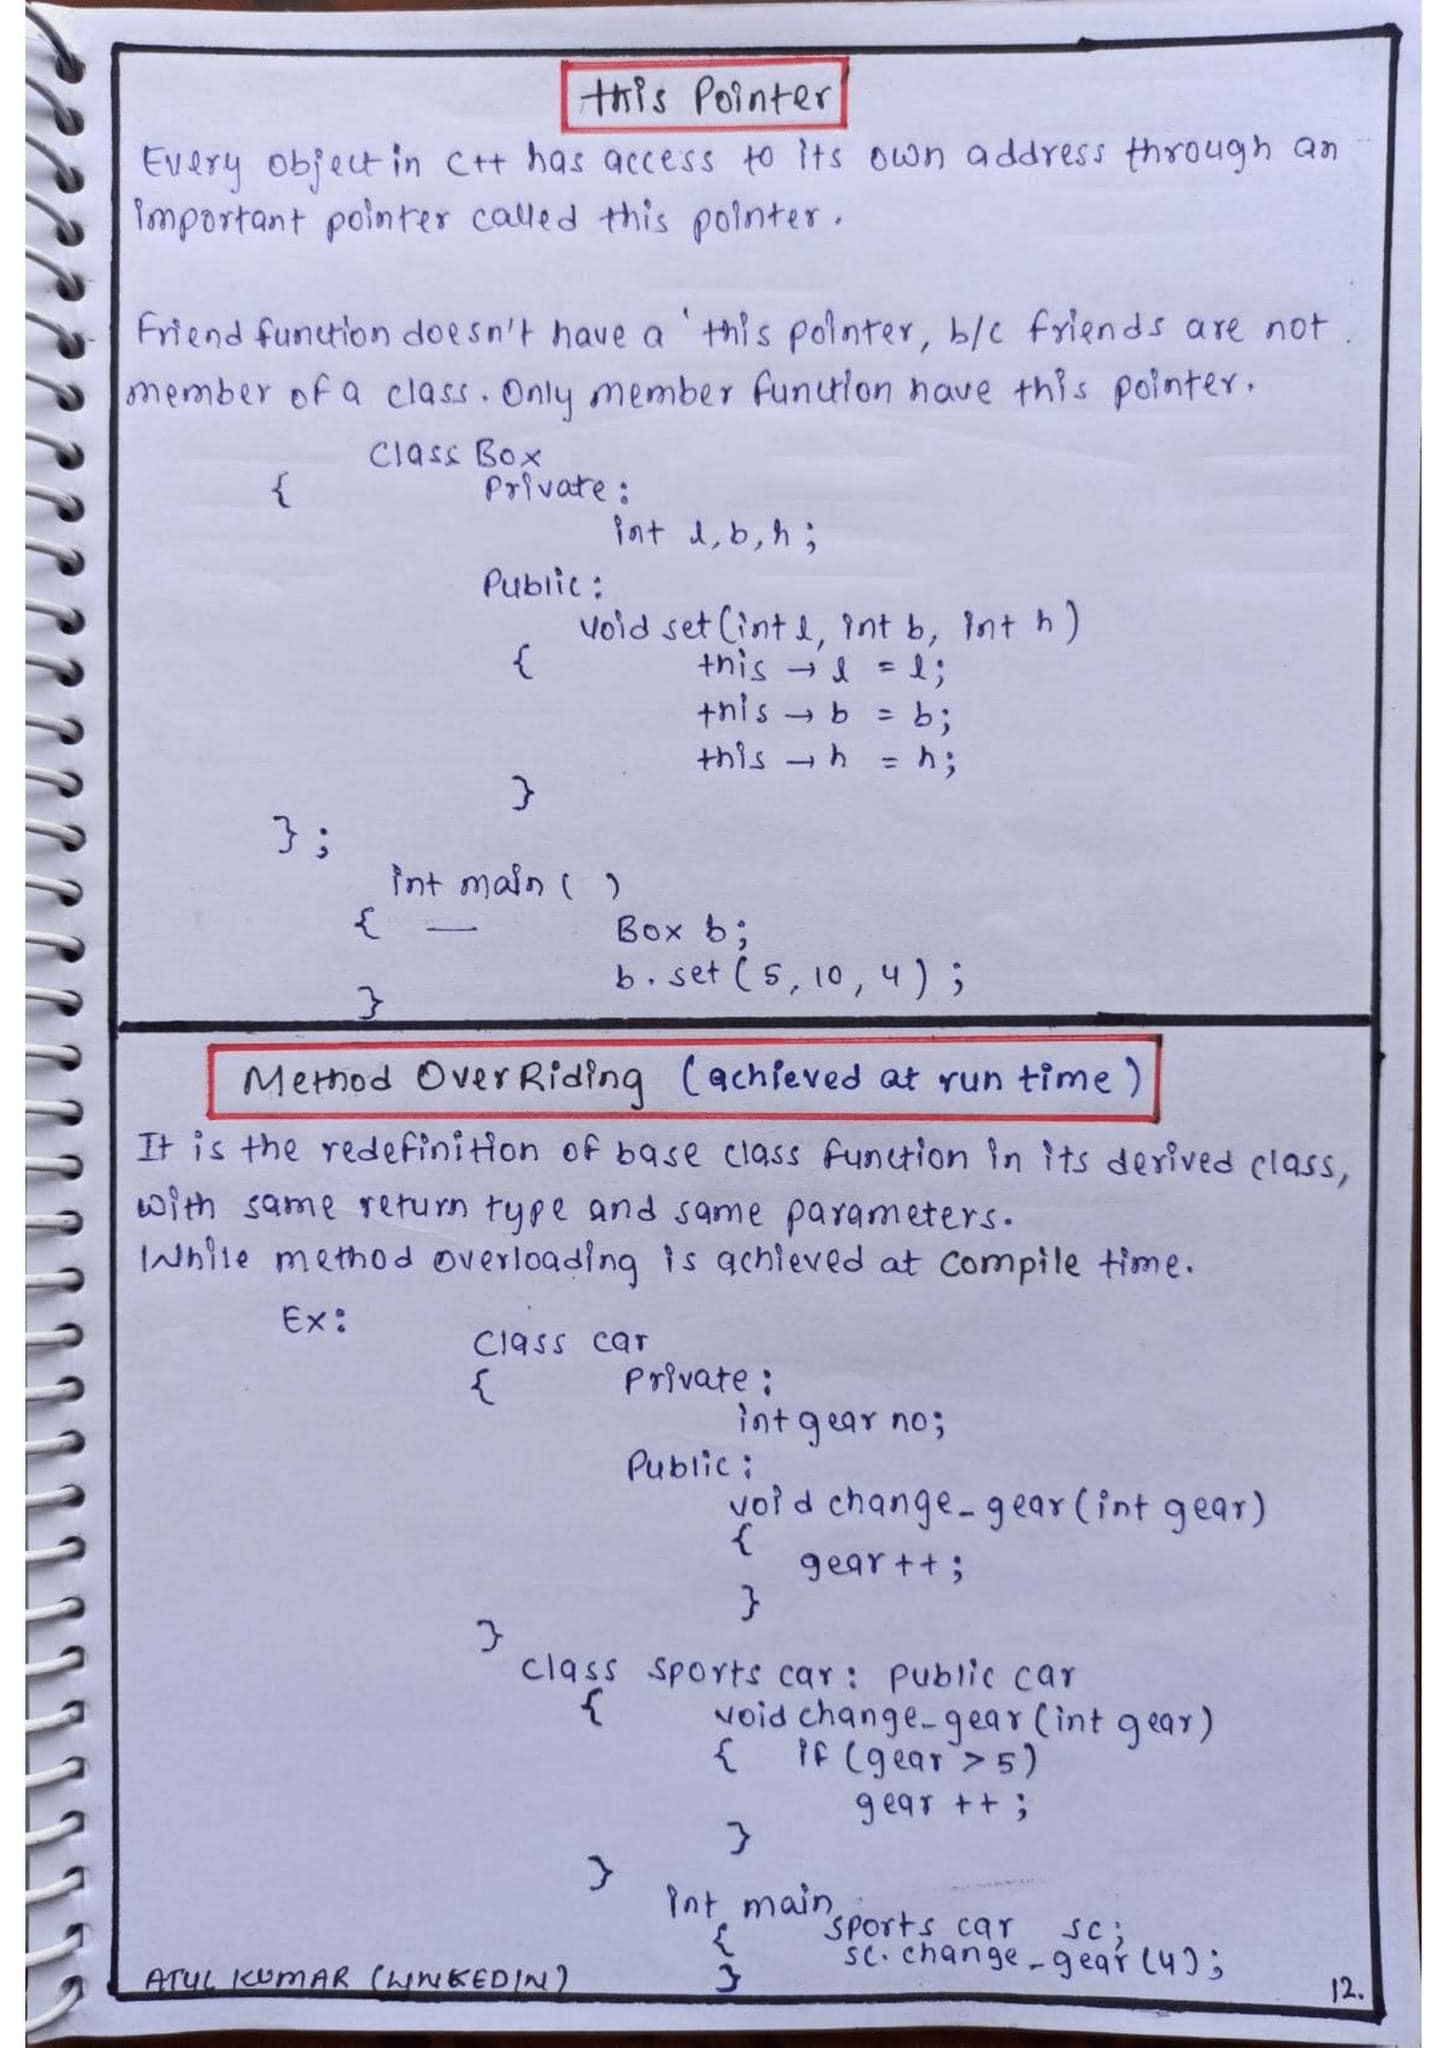 this Pointer
Every object in C++ has access to its own address through an
important pointer called this pointer.
Friend function doesn't have a ' this pointer, b/c friends are not
member of a class. Only member function have this pointer.
Class Box
{ Private:
int l,b,h;
Public:
void set(int l, int b, int h)
{ this → l = l;
this → b = b;
this → h = h;
}
};
int main ( )
{ — Box b;
b. set (5, 10, 4) ;
}
Method OverRiding (achieved at run time)
It is the redefinition of base class function in its derived class,
with same return type and same parameters.
While method overloading is achieved at compile time.
Ex:
Class car
{ Private:
int gear no;
Public:
void change_gear(int gear)
{
gear++;
}
}
class sports car: public car
{ void change_gear(int gear)
{ if (gear > 5)
gear ++;
}
}
int main
sports car sc;
{ sc. change_gear(4);
}
ATUL KUMAR (LINKEDIN)
12.